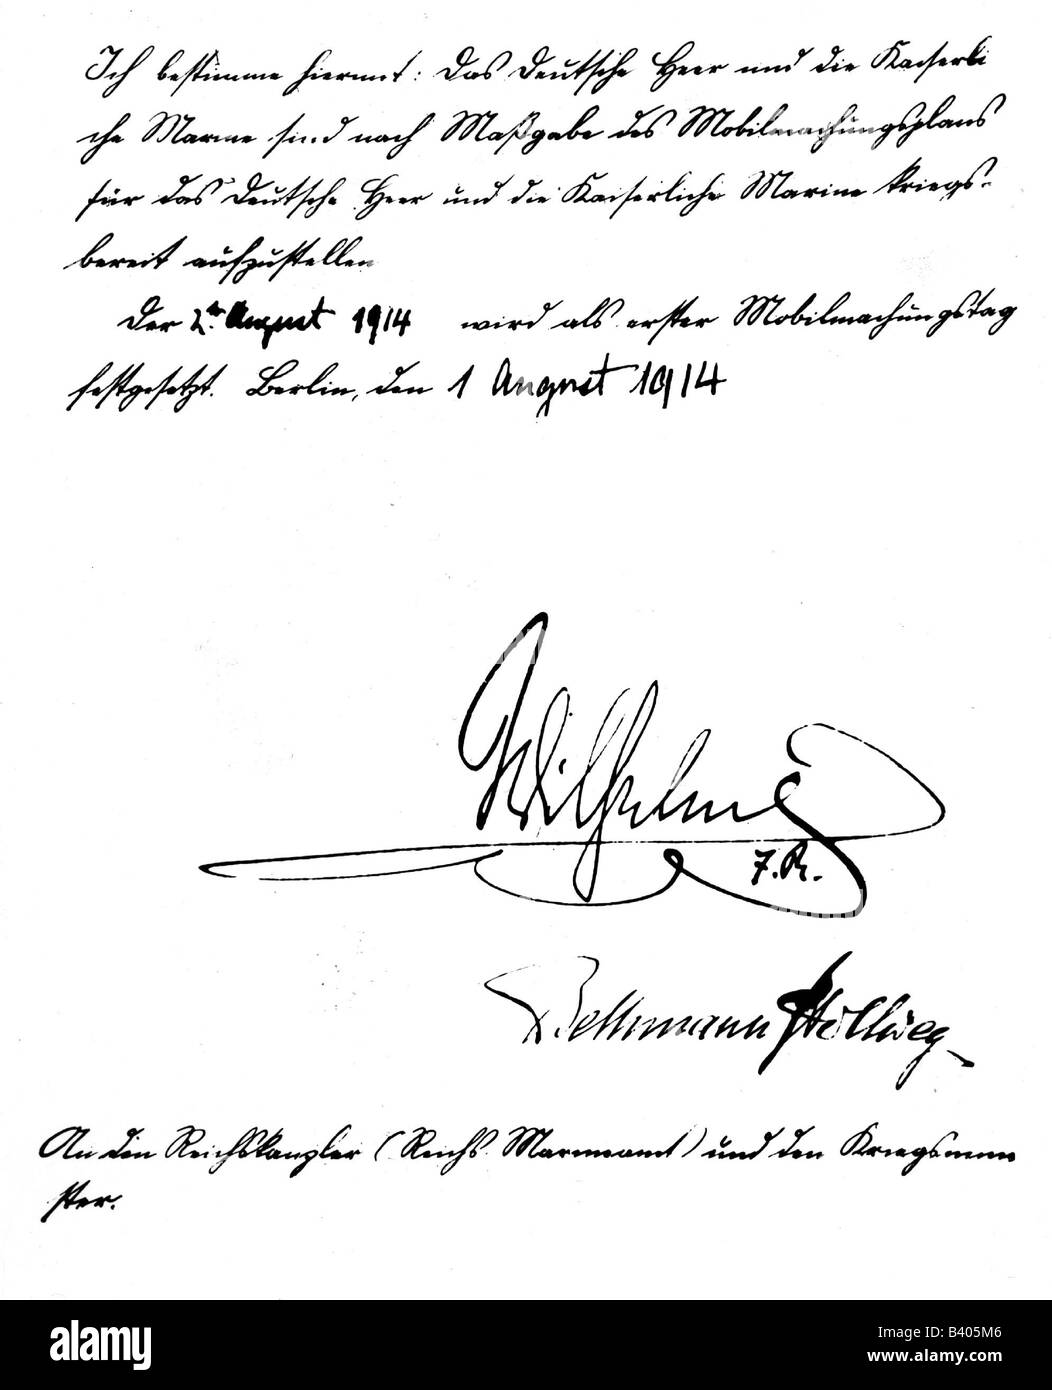 Ich bestimme hiermit: Das Deutsche Heer und die Kaiserli
che Marine sind nach Maßgabe des Mobilmachungsplans
für das Deutsche Heer und die Kaiserliche Marine kriegs-
bereit aufzustellen
Der 2te August 1914 wird als erster Mobilmachungstag
festgesetzt. Berlin, den 1 August 1914
Wilhelm
I.R.
Bethmann Hollweg
An den Reichskanzler (Reichs Marineamt) und den Kriegsmini
ster.
alamy
Image ID: B405M6
www.alamy.com